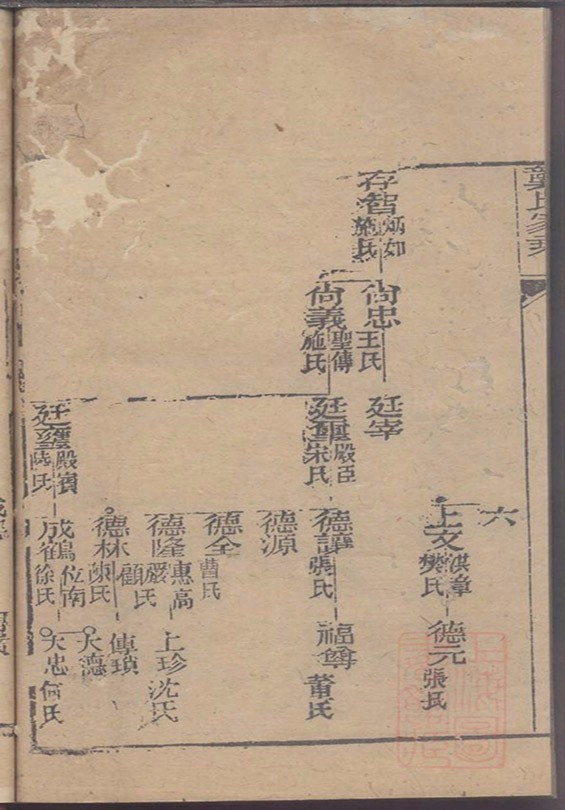 氏家
六
上文 淇漳 樊氏
德元 張氏
存智 炳如 施氏
尚忠 王氏
廷宰
尚義 聖傳 施氏
殿臣 朱氏
張氏
福 董氏
德源
德全 曹氏
德隆 惠高 嚴氏
上珍 沈氏
德林 顧氏 陳氏
傳瑣
大德
廷璽 殿賓 陸氏
成鶴 位南 徐氏
大忠 何氏